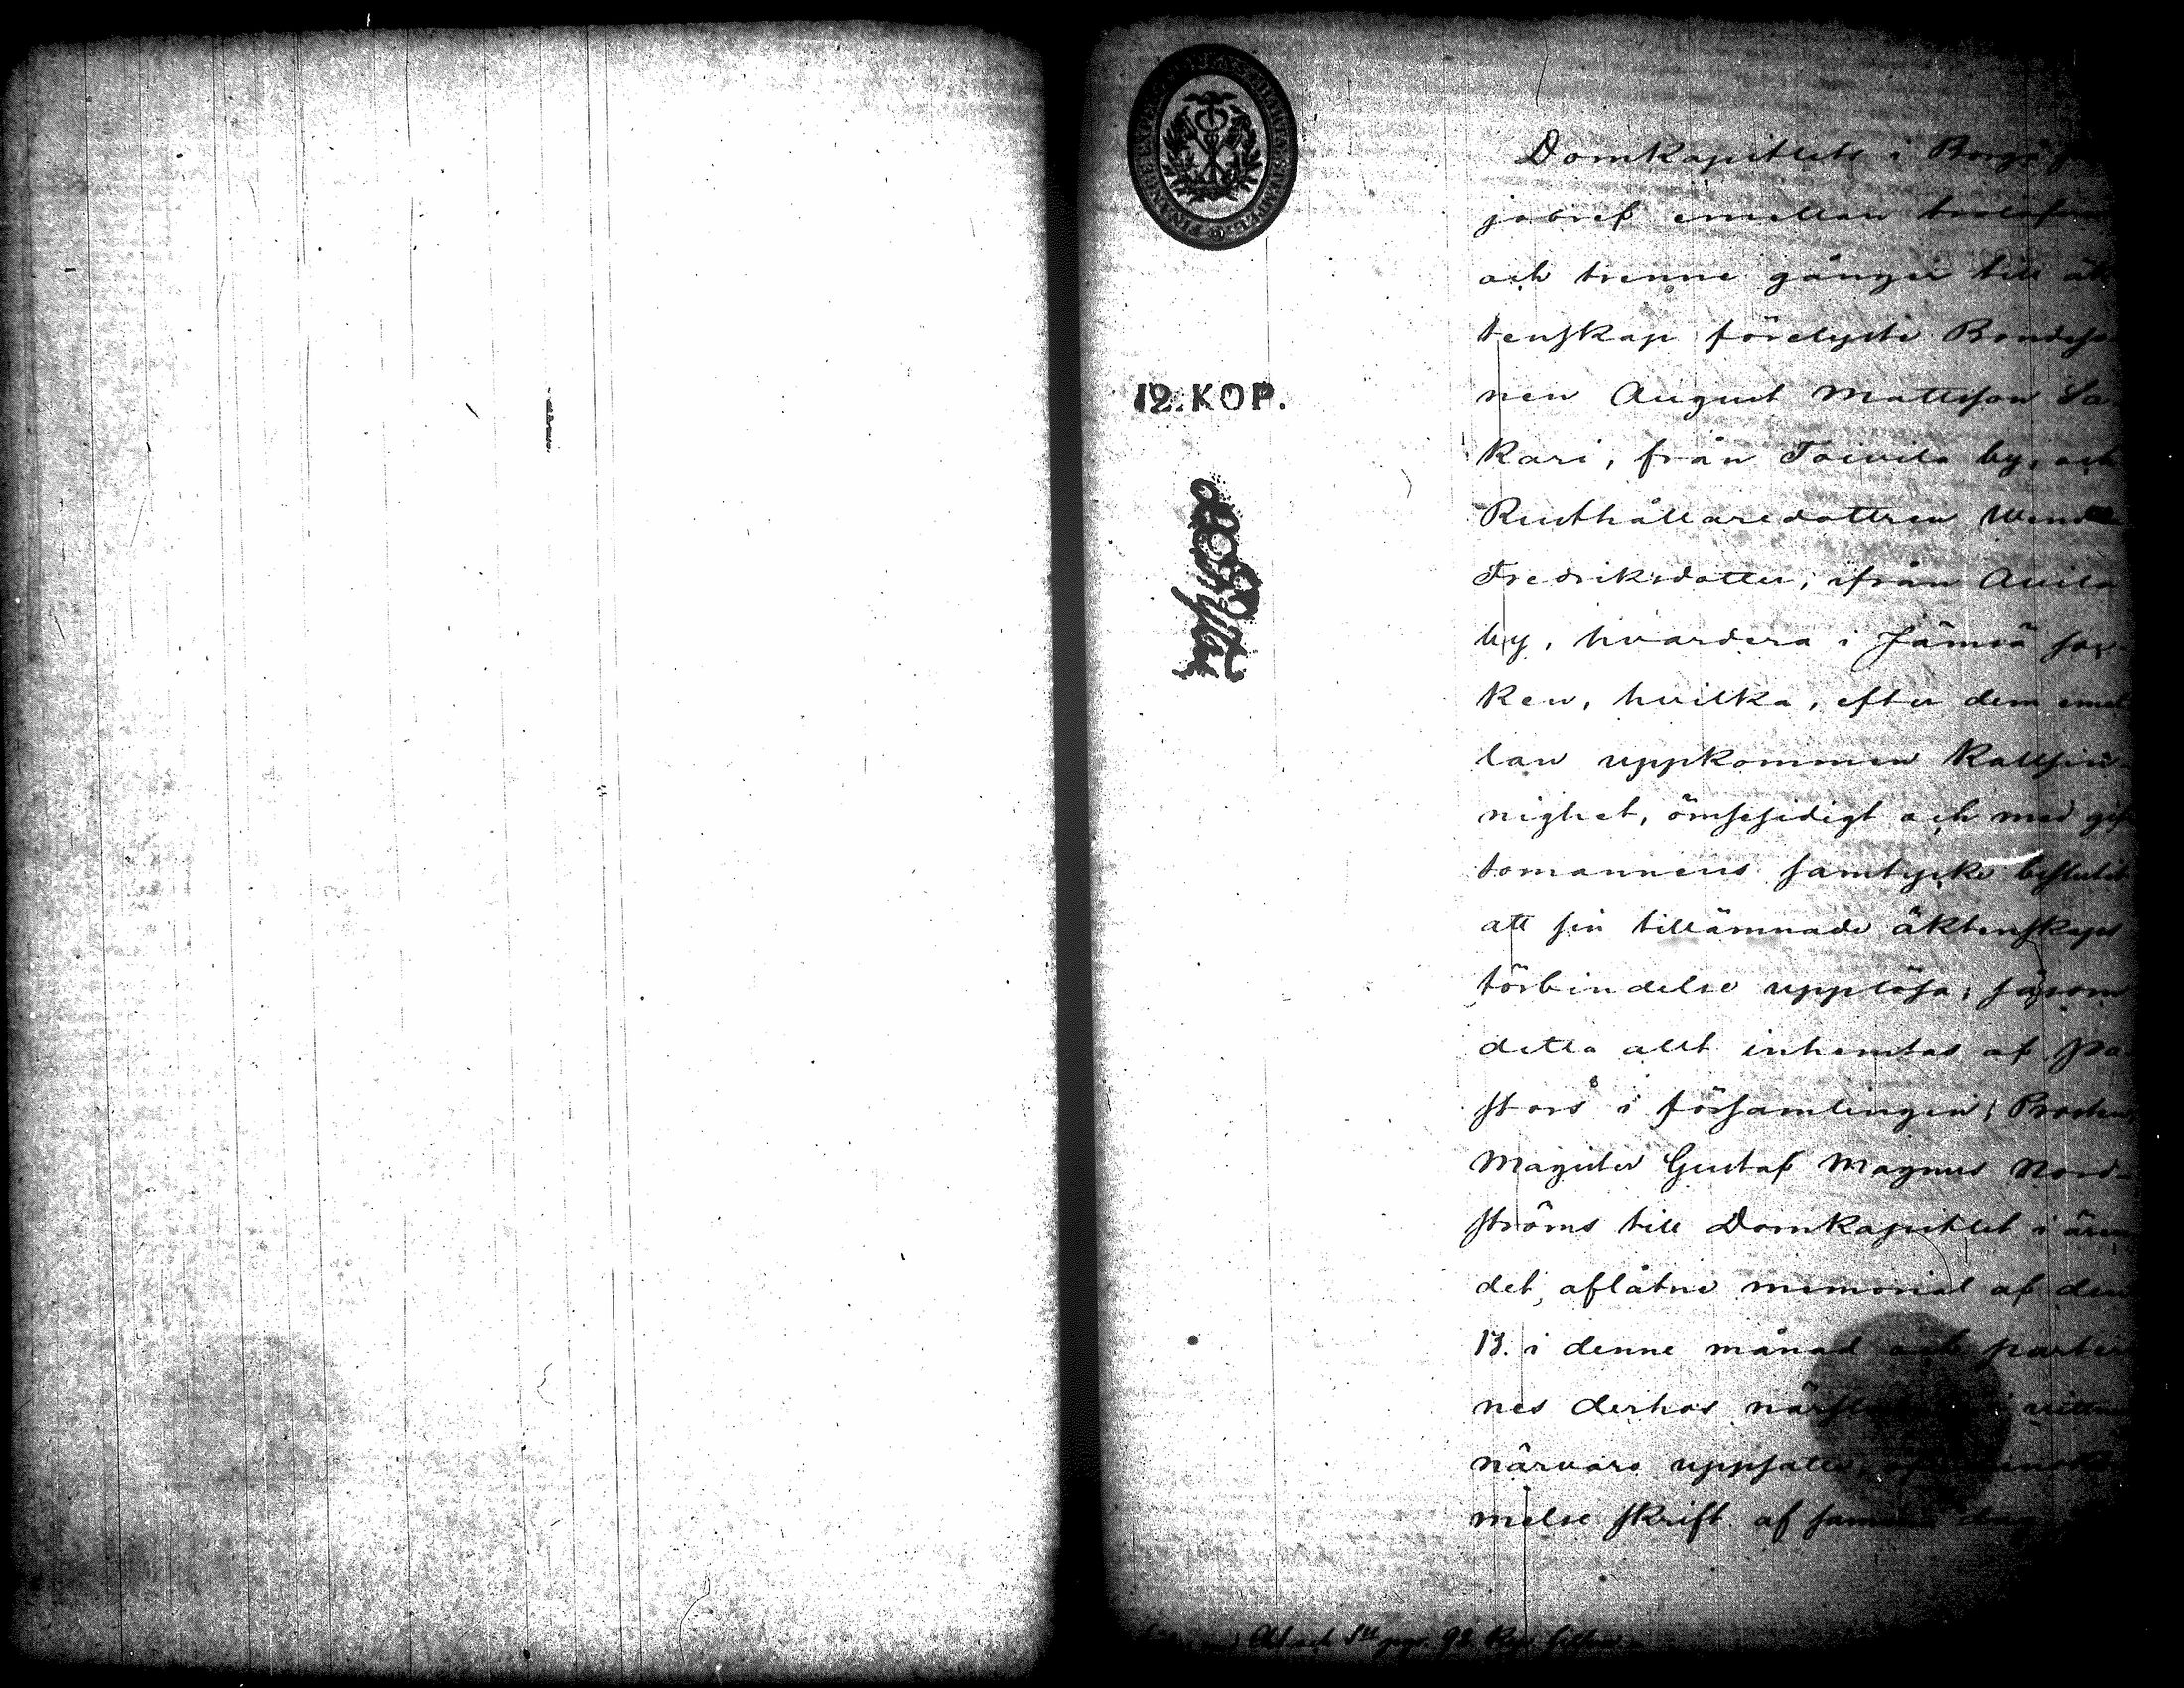 12. KOP.
Domkapitlets i Borgå
jobref emellan trolof
och trenne gånger till äk
tenskap förelyste Bondeso
nen August Mattsson Sa
kari, från Toivila by, och
Rusthållaredottren Wend
Fredriksdotter, ifrån Auila
by, hvardera i Jämsä soc-
ken, hvilka, efter dem emel
lan uppkommen kallsin-
nighet, ömsesidigt och med gif
tomannens samtycke beslutit
att sin tillämnade äktenskaps
förbindelse upplösa; såsom
detta allt inhemtas af Pa-
stors i församlingen, Prosten,
Magister Gustaf Magnus Nord-
ströms till Domkapitlet i ären
det, aflåtne memorial af den
13. i denne månad och parter
nes derhos närslutne i vittne
närvaro uppsatte
melse skrift af samma dag